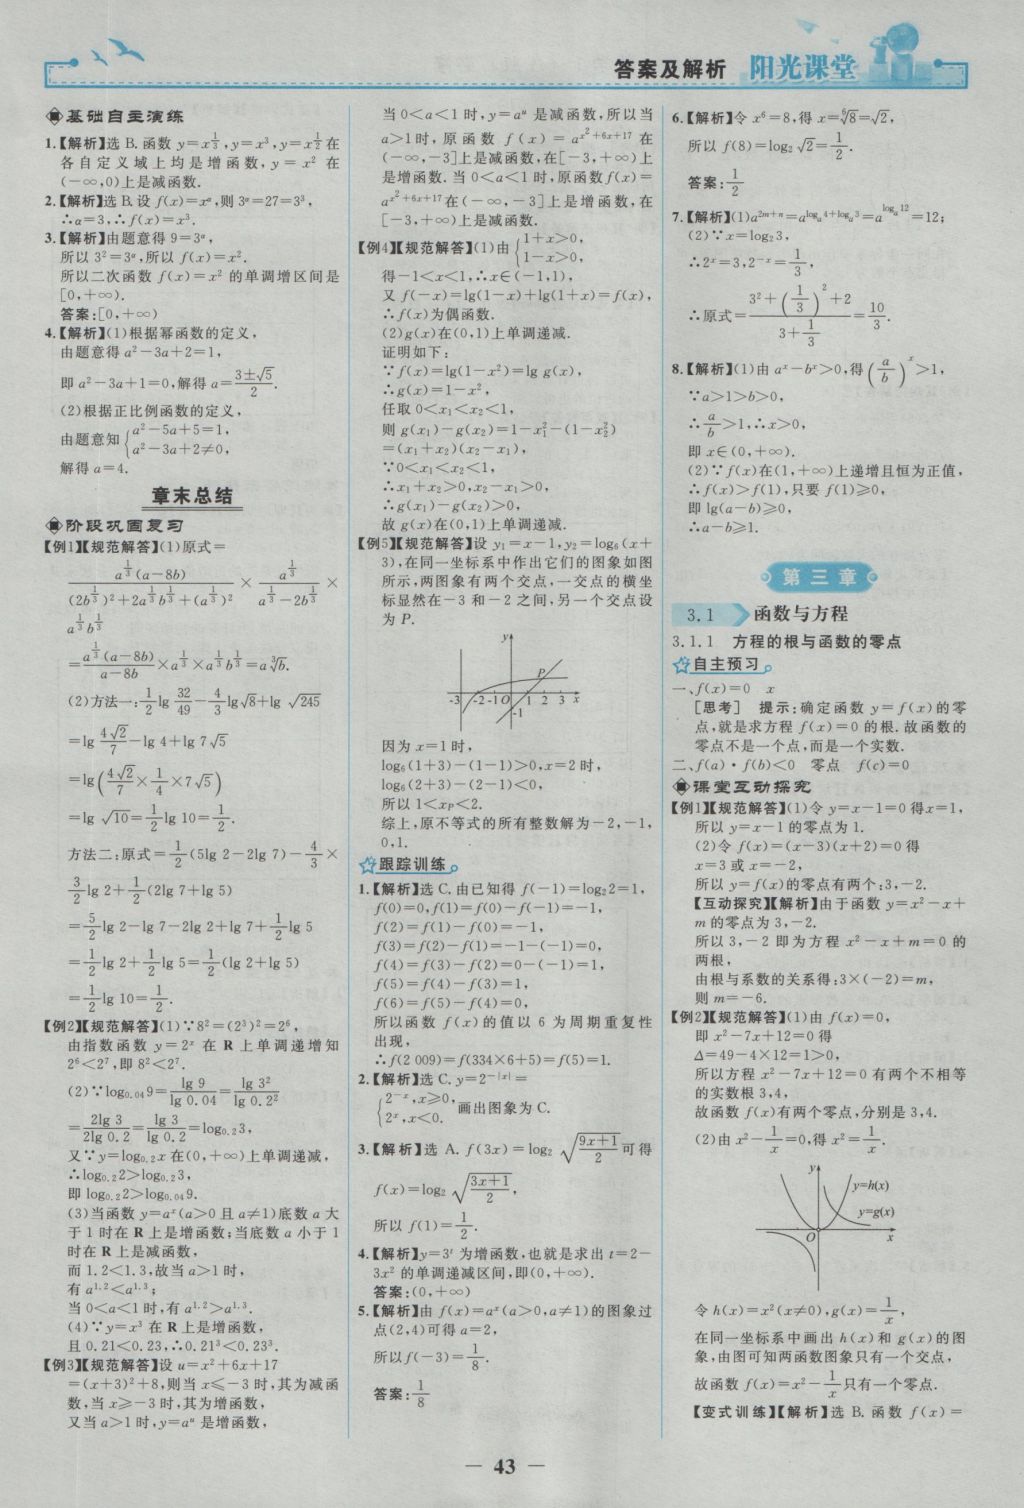 答案及解析 阳光课堂
基础自主演练
1.【解析】选 B. 函数 y=x^{1/3}, y=x³, y=x^{1/2} 在
各自定义域上均是增函数, y=x² 在
(-∞,0)上是减函数.
2.【解析】选 B. 设 f(x)=x^α, 则 3^α=27=3³,
∴α=3, ∴f(x)=x³.
3.【解析】由题意得 9=3^α,
所以 3²=3^α, 所以 f(x)=x².
所以二次函数 f(x)=x² 的单调增区间是
[0,+∞).
答案:[0,+∞)
4.【解析】(1)根据幂函数的定义,
由题意得 a²-3a+2=1,
即 a²-3a+1=0, 解得 a=(3±√5)/2.
(2)根据正比例函数的定义,
由题意知 { a²-5a+5=1,
a²-3a+2≠0,
解得 a=4.
章末总结
阶段巩固复习
【例1】【规范解答】(1)原式=
a^{1/3}(a-8b)/((2b^{1/3})²+2a^{1/3}b^{1/3}+(a^{1/3})²) × a^{1/3}/(a^{1/3}-2b^{1/3}) ×
a^{1/3}b^{1/3}
=a^{1/3}(a-8b)/(a-8b)×a^{1/3}×a^{1/3}b^{1/3}=a∛b.
(2)方法一: 1/2 lg 32/49 - 4/3 lg√8+lg √245
=lg 4√2/7 -lg 4+lg 7√5
=lg(4√2/7×1/4×7√5)
=lg √10=1/2 lg 10=1/2.
方法二:原式=1/2(5lg 2-2lg 7)-4/3×
3/2 lg 2+1/2(2lg 7+lg 5)
=5/2 lg 2-lg 7-2lg 2+lg 7+1/2 lg 5
=1/2 lg 2+1/2 lg 5=1/2(lg 2+lg 5)
=1/2 lg 10=1/2.
【例2】【规范解答】(1)∵8²=(2³)²=2⁶,
由指数函数 y=2^x 在 R 上单调递增知
2⁶<2⁷, 即 8²<2⁷.
(2)∵log_{0.04}9=lg 9/lg 0.04=lg 3²/lg 0.2²
=2lg 3/2lg 0.2=lg 3/lg 0.2=log_{0.2}3,
又∵y=log_{0.2}x 在(0,+∞)上单调递减,
∴log_{0.2}2>log_{0.2}3,
即 log_{0.2}2>log_{0.04}9.
(3)当函数 y=a^x(a>0 且 a≠1)底数 a 大
于 1 时在 R 上是增函数;当底数 a 小于 1
时在 R 上是减函数,
而 1.2<1.3, 故当 a>1 时,
有 a^{1.2}<a^{1.3};
当 0<a<1 时, 有 a^{1.2}>a^{1.3}.
(4)∵y=x³ 在 R 上是增函数,
且 0.21<0.23, ∴0.21³<0.23³.
【例3】【规范解答】设 u=x²+6x+17
=(x+3)²+8, 则当 x≤-3 时, 其为减函
数, 当 x≥-3 时, 其为增函数,
又当 a>1 时, y=a^u 是增函数,
当 0<a<1 时, y=a^u 是减函数, 所以当
a>1时, 原函数 f(x)=a^{x²+6x+17} 在
(-∞,-3]上是减函数, 在[-3,+∞)上
是增函数. 当 0<a<1 时, 原函数f(x)=
a^{x²+6x+17}在(-∞,-3]上是增函数, 在
[-3,+∞)上是减函数.
【例4】【规范解答】(1)由 { 1+x>0,
1-x>0,
得-1<x<1, ∴x∈(-1,1),
又 f(-x)=lg(1-x)+lg(1+x)=f(x),
∴f(x)为偶函数.
(2)g(x)在(0,1)上单调递减.
证明如下:
∵f(x)=lg(1-x²)=lg g(x),
∴g(x)=1-x²,
任取 0<x₁<x₂<1,
则 g(x₁)-g(x₂)=1-x₁²-(1-x₂²)
=(x₁+x₂)(x₂-x₁),
∵0<x₁<x₂<1,
∴x₁+x₂>0, x₂-x₁>0,
∴g(x₁)-g(x₂)>0,
故 g(x)在(0,1)上单调递减.
【例5】【规范解答】设 y₁=x-1, y₂=log₆(x+
3), 在同一坐标系中作出它们的图象如图
所示, 两图象有两个交点, 一交点的横坐
标显然在-3 和-2 之间, 另一个交点设
为 P.
y P
-3 -2 -1 O 1 2 3 x
-1
因为 x=1 时,
log₆(1+3)-(1-1)>0, x=2 时,
log₆(2+3)-(2-1)<0,
所以 1<x_P<2.
综上, 原不等式的所有整数解为-2, -1,
0,1.
跟踪训练
1.【解析】选 C. 由已知得 f(-1)=log₂2=1,
f(0)=0, f(1)=f(0)-f(-1)=-1,
f(2)=f(1)-f(0)=-1,
f(3)=f(2)-f(1)=-1-(-1)=0,
f(4)=f(3)-f(2)=0-(-1)=1,
f(5)=f(4)-f(3)=1,
f(6)=f(5)-f(4)=0,
所以函数 f(x) 的值以 6 为周期重复性
出现,
∴f(2 009)=f(334×6+5)=f(5)=1.
2.【解析】选 C. y=2^{-|x|}=
{ 2^{-x}, x≥0,
2^x, x<0. 画出图象为 C.
3.【解析】选 A. f(3x)=log₂ √((9x+1)/2) 可得
f(x)=log₂ √((3x+1)/2),
所以 f(1)=1/2.
4.【解析】y=3^t 为增函数, 也就是求出 t=2-
3x² 的单调递减区间, 即(0,+∞).
答案:(0,+∞)
5.【解析】由 f(x)=a^x(a>0,a≠1)的图象过
点(2,4)可得 a=2,
所以f(-3)=1/8.
答案:1/8
6.【解析】令 x⁶=8, 得 x=⁶√8=√2,
所以 f(8)=log₂ √2=1/2.
答案:1/2
7.【解析】(1)a^{2m+n}=a^{log_a 4+log_a 3}=a^{log_a 12}=12;
(2)∵x=log₂3,
∴2^x=3, 2^{-x}=1/3,
∴原式=(3²+(1/3)²+2)/(3+1/3)=10/3.
8.【解析】(1)由 a^x-b^x>0, 得(a/b)^x>1,
∵a>1>b>0,
∴a/b>1, ∴x>0,
即 x∈(0,+∞).
(2)∵f(x)在(1,+∞)上递增且恒为正值,
∴f(x)>f(1), 只要 f(1)≥0,
即 lg(a-b)≥0,
∴a-b≥1.
第三章
3.1 函数与方程
3.1.1 方程的根与函数的零点
自主预习
一、f(x)=0 x
[思考] 提示:确定函数 y=f(x)的零
点, 就是求方程 f(x)=0 的根. 故函数的
零点不是一个点, 而是一个实数.
二、f(a)·f(b)<0 零点 f(c)=0
课堂互动探究
【例1】【规范解答】(1)令 y=x-1=0 得x=1,
所以 y=x-1 的零点为 1.
(2)令 f(x)=(x-3)(x+2)=0 得
x=3 或 x=-2,
所以 y=f(x)的零点有两个:3, -2.
【互动探究】【解析】由于函数 y=x²-x+
m 的零点为 3, -2.
所以 3, -2 即为方程 x²-x+m=0 的
两根,
由根与系数的关系得:3×(-2)=m,
则 m=-6.
【例2】【规范解答】(1)由 f(x)=0,
即 x²-7x+12=0 得
Δ=49-4×12=1>0,
所以方程 x²-7x+12=0 有两个不相等
的实数根 3,4,
故函数 f(x)有两个零点, 分别是 3,4.
(2)由 x²-1/x=0, 得 x²=1/x.
y
y=h(x)
y=g(x)
O x
令 h(x)=x²(x≠0), g(x)=1/x,
在同一坐标系中画出 h(x)和 g(x)的图
象, 由图可知两函数图象只有一个交点,
故函数 f(x)=x²-1/x只有一个零点.
【变式训练】【解析】选 B. 函数 f(x)=
— 43 —